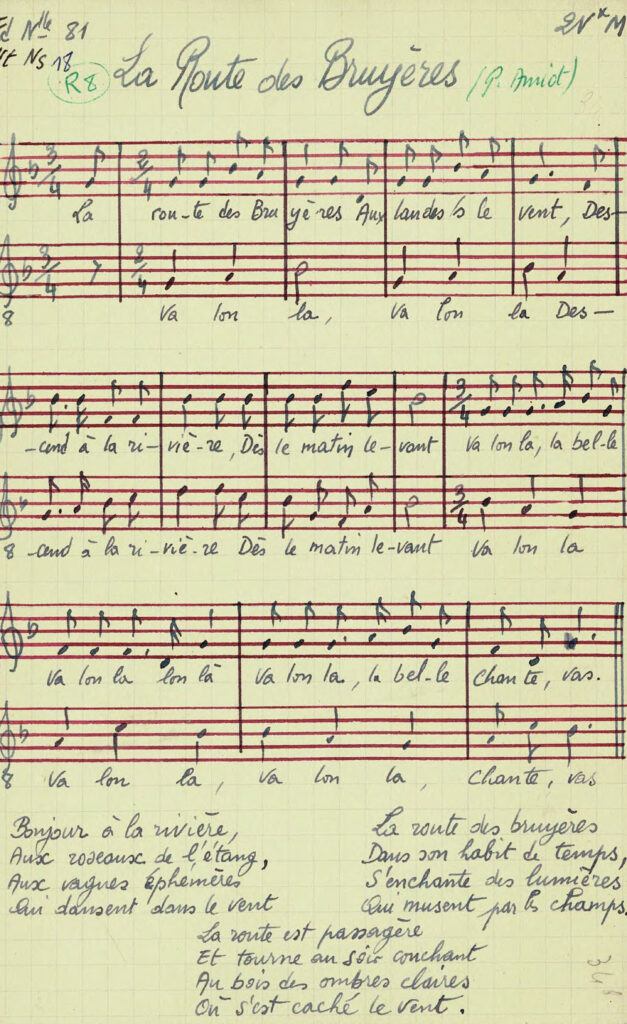 Nlle 81 2Vx M
Nt Ns 18
R8 La Route des Bruyères (P. Amiot)
3/4 2/4
La rou-te des Bru yè-res Aux landes le vent, Des-
3/4 2/4
8 Va lon la, Va lon la Des-
3/4
-cend à la ri- viè-re, Dès le matin le- vant Va lon la, la bel-le
3/4
8 -cend à la ri-viè-re Dès le matin le-vant Va lon la
Va lon la lon là Va lon la, la bel-le Chante, vas.
8 Va lon la, Va lon la, Chante, vas
Bonjour à la rivière,
Aux roseaux de l'étang,
Aux vagues éphémères
Qui dansent dans le vent
La route des bruyères
Dans son habit de temps,
S'enchante des lumières
Qui musent par ls champs.
La route est passagère
Et tourne au soir couchant
Au bois des ombres claires
Où s'est caché le vent.